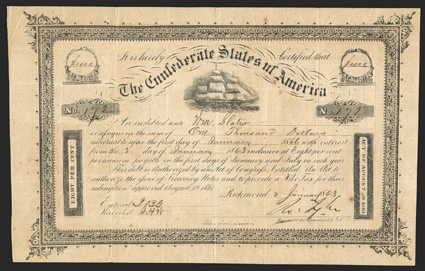 It is hereby Certified that
$1000
$1000
The Confederate States of America
No.
No.
are indebted unto Wm Slater
or assigns in the sum of One Thousand Dollars
redeemable after the first day of January 1866 with interest
from the day of January 1863 inclusive at Eight per cent
per annum payable on the first days of January and July in each year
This debt is Authorized by an Act of Congress Entitled An Act to
authorize the issue of Treasury Notes and to provide a War tax for their
redemption approved August 19 1861
EIGHT PER CENT
ACT OF AUGUST 19, 1861
Richmond January 1863
Entered
Recorded